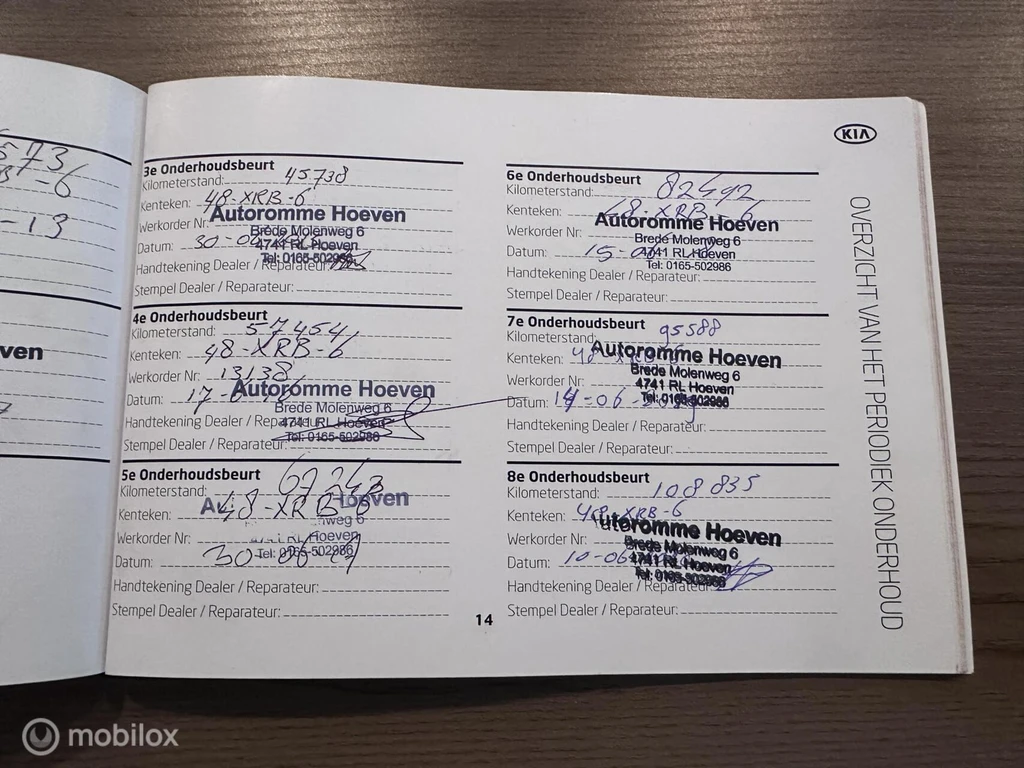 573
-6
-13
ven
3e Onderhoudsbeurt
Kilometerstand: 45738
Kenteken: 48-XRB-6
Autoromme Hoeven
Werkorder Nr:
Brede Molenweg 6
Datum: 30-0
4741 RL Hoeven
Handtekening Dealer / Reparateur:
Tel: 0165-502986
Stempel Dealer / Reparateur:
4e Onderhoudsbeurt
Kilometerstand: 57454
Kenteken: 48-XRB-6
Werkorder Nr: 13138
Autoromme Hoeven
Datum: 17-
Brede Molenweg 6
Handtekening Dealer / Reparateur:
4741 RL Hoeven
Stempel Dealer / Reparateur:
Tel: 0165-502986
5e Onderhoudsbeurt
Kilometerstand:
Kenteken: 48-XRB-6
Hoeven
Werkorder Nr:
Hoeven
Datum: 30-06
Tel: 0165-502986
Handtekening Dealer / Reparateur:
Stempel Dealer / Reparateur:
6e Onderhoudsbeurt
Kilometerstand: 82492
Kenteken: 48-XRB-6
Autoromme Hoeven
Werkorder Nr:
Brede Molenweg 6
Datum: 15-
4741 RL Hoeven
Handtekening Dealer / Reparateur:
Tel: 0165-502986
Stempel Dealer / Reparateur:
7e Onderhoudsbeurt
Kilometerstand: 95588
Kenteken: 48
Autoromme Hoeven
Werkorder Nr:
Brede Molenweg 6
4741 RL Hoeven
Datum: -06-
Tel: 0165-502986
Handtekening Dealer / Reparateur:
Stempel Dealer / Reparateur:
8e Onderhoudsbeurt
Kilometerstand: 108835
Kenteken: 48-XRB-6
Autoromme Hoeven
Werkorder Nr:
Brede Molenweg 6
Datum: 10-06
4741 RL Hoeven
Tel: 0165-502986
Handtekening Dealer / Reparateur:
Stempel Dealer / Reparateur:
14
KIA
OVERZICHT VAN HET PERIODIEK ONDERHOUD
mobilox